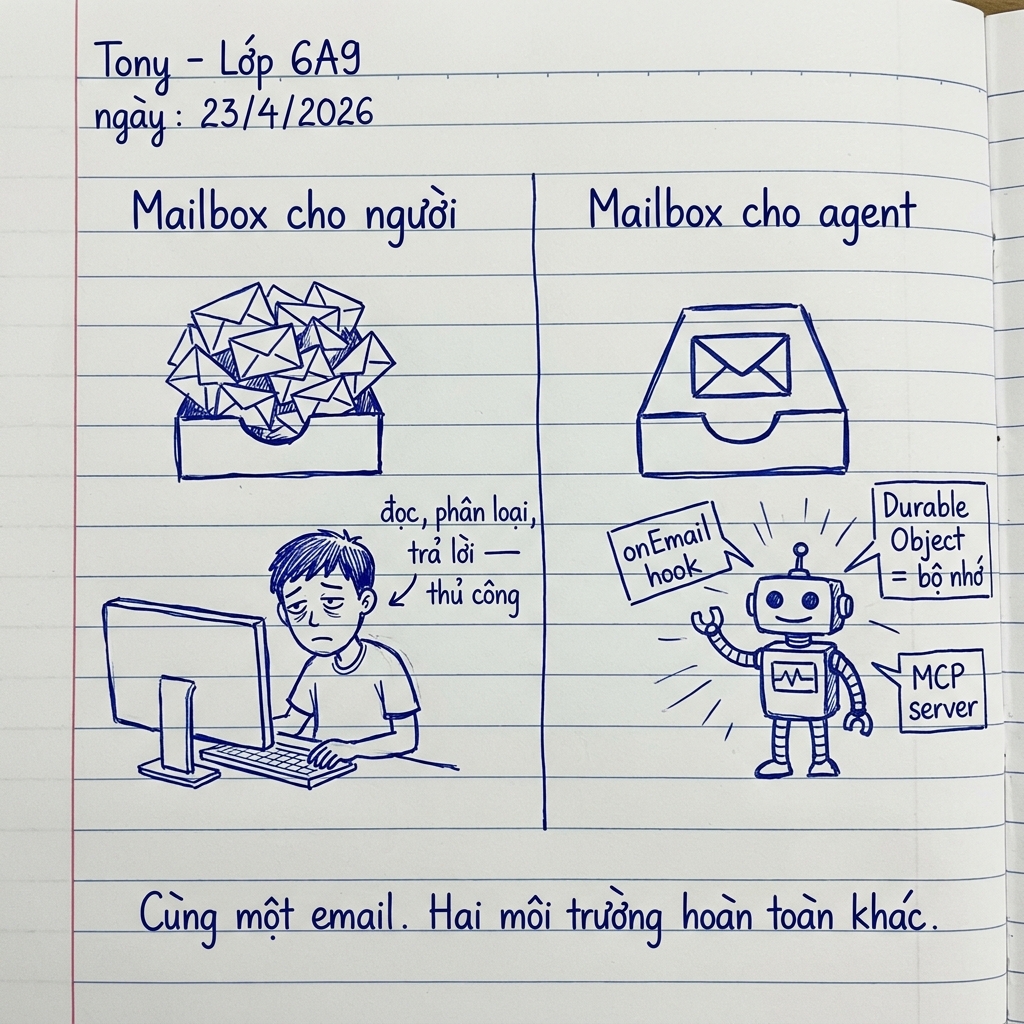 Tony - Lớp 6A9
ngày: 23/4/2026
Mailbox cho người
đọc, phân loại,
trả lời —
thủ công
Mailbox cho agent
onEmail
hook
Durable
Object
= bộ nhớ
MCP
server
Cùng một email. Hai môi trường hoàn toàn khác.